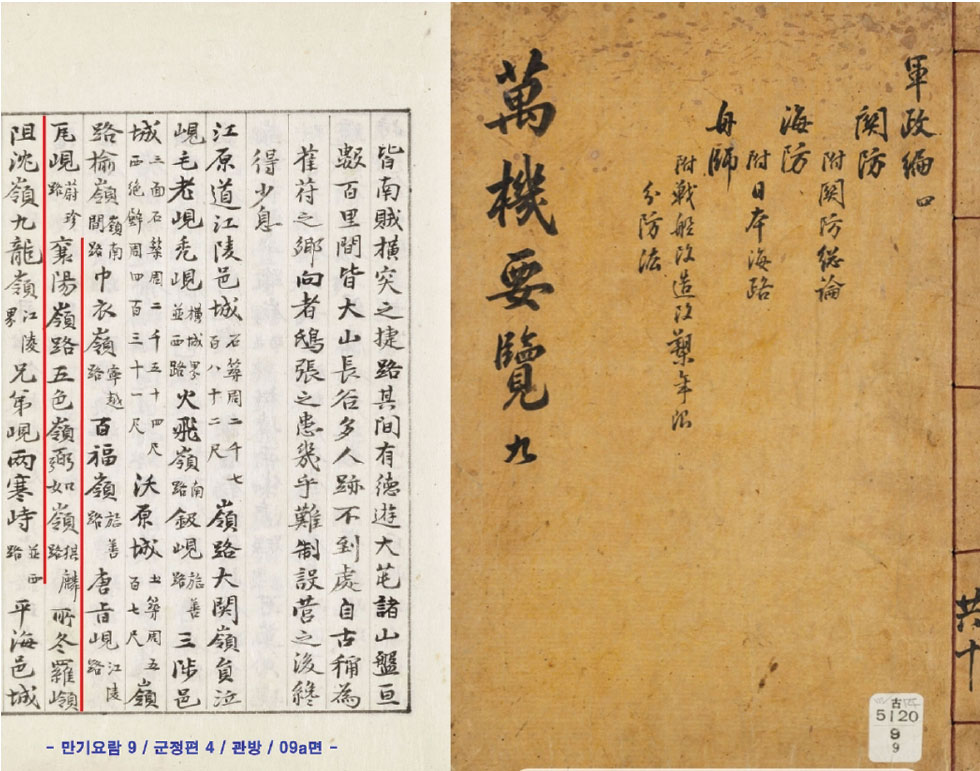 軍政編 四
關防
附關防総論
海防
附日本海路
舟師
附戰船改造改槊年限
分防法
萬機要覽 九
共十
古
5120
9
9
皆南賊橫突之捷路其間有德遊大芚諸山盤亘
數百里間皆大山長谷多人跡不到處自古稱為
萑苻之鄉向者鴟張之患幾乎難制設營之後終
得少息
江原道江陵邑城石築周二千七百八十二尺嶺路大関嶺負泣
峴毛老峴禿峴橫城界並西路火飛嶺南路釼峴旌善路三陟邑
城三面石築周二千五十四尺西絶壁周四百三十一尺沃原城土築周五百七尺嶺
路楡嶺嶺南間路巾衣嶺寧越路百福嶺旌善路唐古峴江陵路
瓦峴蔚珍路襄陽嶺路五色嶺弼如嶺猉麟路所冬羅嶺
阻洮嶺九龍嶺江陵界兄弟峴兩寒峙並西路平海邑城
- 만기요람 9 / 군정편 4 / 관방 / 09a면 -